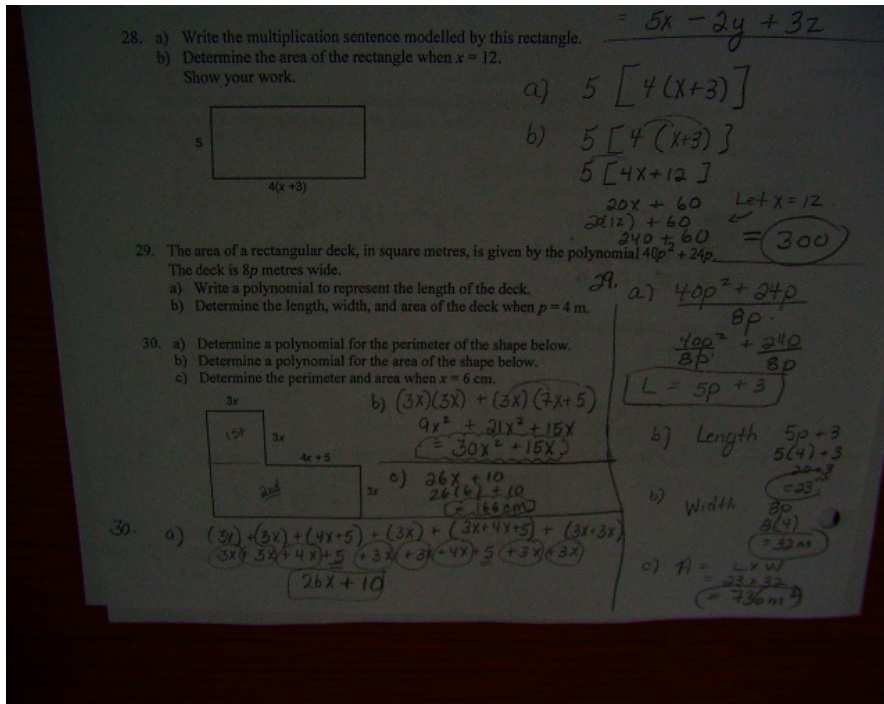 = 5x - 2y + 3z
28. a) Write the multiplication sentence modelled by this rectangle.
b) Determine the area of the rectangle when x = 12.
Show your work.
5
4(x +3)
a) 5 [4(x+3)]
b) 5 [4(x+3)]
5 [4x+12]
20x + 60 Let x = 12.
20(12) + 60
240 + 60 = 300
29. The area of a rectangular deck, in square metres, is given by the polynomial 40p² + 24p.
The deck is 8p metres wide.
a) Write a polynomial to represent the length of the deck.
b) Determine the length, width, and area of the deck when p = 4 m.
29. a) 40p² + 24p
8p
40p² + 24p
8p 8p
L = 5p + 3
b) Length 5p + 3
5(4) + 3
20+3
= 23
b) Width 8p
8(4)
= 32m
c) A = L x W
= 23 x 32
= 736 m²
30. a) Determine a polynomial for the perimeter of the shape below.
b) Determine a polynomial for the area of the shape below.
c) Determine the perimeter and area when x = 6 cm.
3x
1st
3x
4x + 5
2nd
3x
b) (3x)(3x) + (3x)(7x+5)
9x² + 21x² + 15x
= 30x² + 15x
c) 26x + 10
26(6) + 10
= 166 cm
30. a) (3x) + (3x) + (4x+5) + (3x) + (3x+4x+5) + (3x+3x)
3x + 3x + 4x + 5 + 3x + 3x + 4x + 5 + 3x + 3x
26x + 10